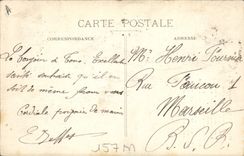 CARTE POSTALE
CORRESPONDANCE
ADRESSE
Le bonjour de Excellente
santé souhaite qu'il en
soit de même pour vous
Cordiale poignée de main
Mr Henri
Rue
Marseille
B. D. R.
157M